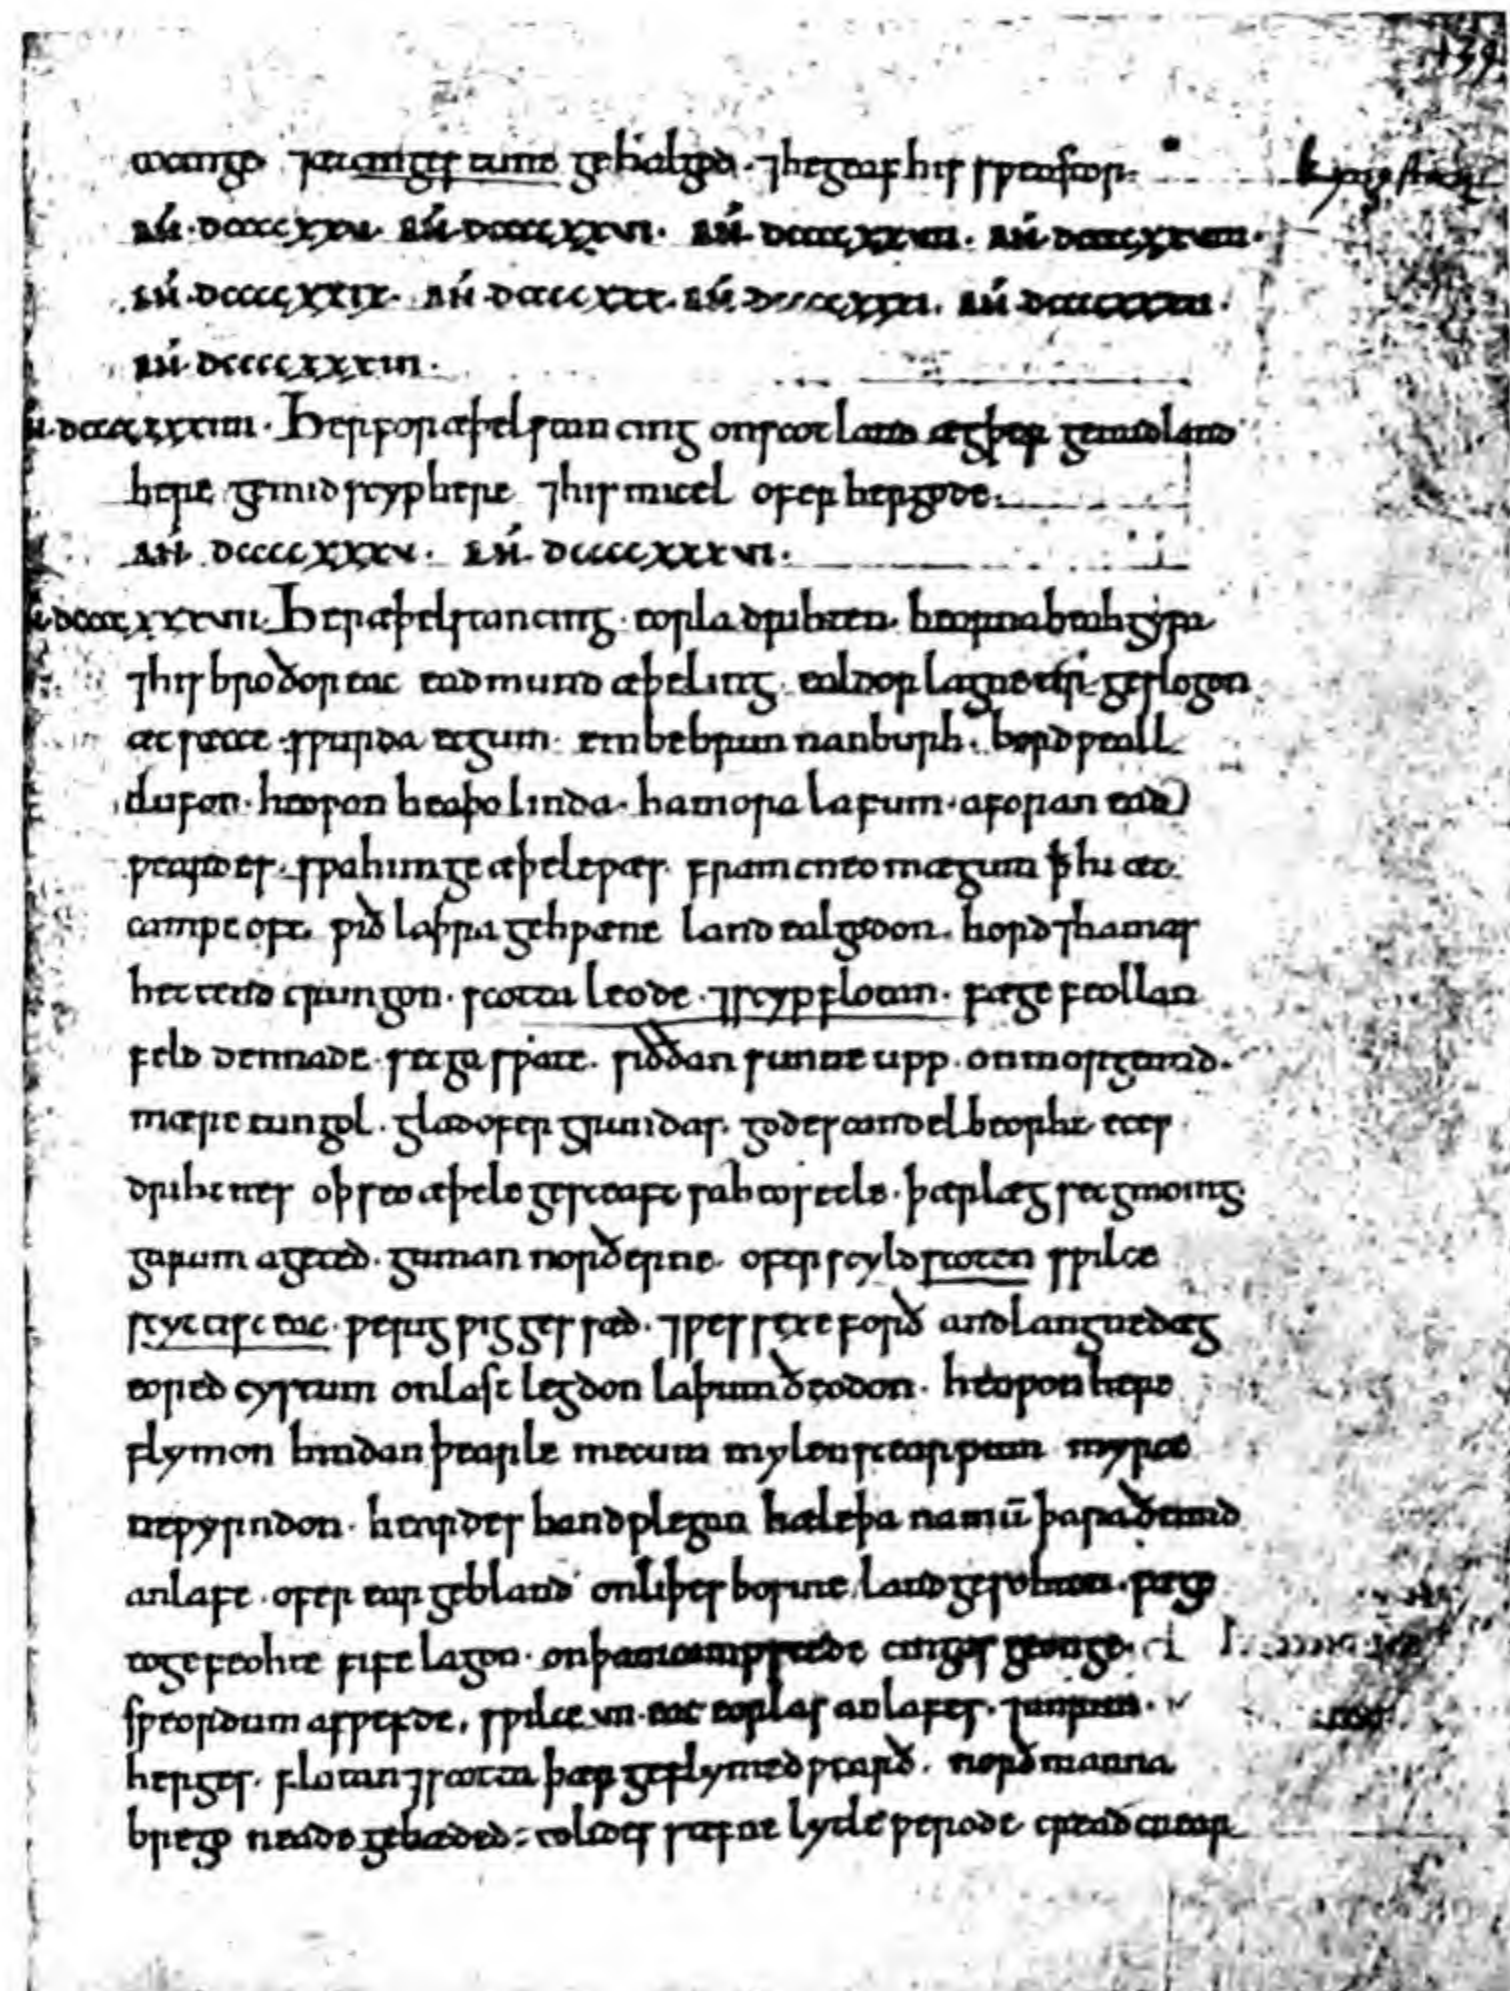 139.
gecorenge ⁊ æt cinges tune gehalgod · ⁊ he geaf his sweostor· kyngston
AN̄· dccccxxv· AN̄· dccccxxvi· AN̄· dccccxxvii· AN̄· dccccxxviii·
AN̄· dccccxxix· AN̄· dccccxxx· AN̄· dccccxxxi· AN̄· dccccxxxii·
AN̄· dccccxxxiii·
N̄· dccccxxxiiii· Her for æþelstan cing on scotland ægþer ge mid land
here ge mid scyp here ⁊ his micel ofer hergode·
AN̄· dccccxxxv· AN̄· dccccxxxvi·
N̄· dccccxxxvii· Her æþelstan cing · eorla drihten · beorna beahgyfa
⁊ his broðor eac eadmund æþeling · ealdor lagne tir · geslogon
æt sæcce · swurda ecgum · embe brunnanburh · bord weall
clufon · heowon heaþolinda · hamora lafum · aforan ead
weardes · swa him geæþele wæs · fram cneo mægum ꝥ hi æt
campe oft · wið laþra gehwæne land ealgodon · hord ⁊ hamas
hettend crungon · scotta leode · ⁊ scyp flotan · fæge feollan
feld dennade · secga swate · siððan sunne upp · on morgentid ·
mære tungol · glad ofer grundas · godes candel beorht · eces
drihtnes oþ seo æþele gesceaft sah to setle · þær læg secg monig
garum ageted · guman norðerne · ofer scyld scoten swilce
scyttisc eac · werig wigges sæd · ⁊ wes sexe forð andlangne dæg
eored cystum on last legdon laþum ðeodon · heowon here
flymon hindan þearle mecum mylenscearpum myrce
ne wyrndon · heardes handplegan hæleþa namū þara ðe mid
anlafe · ofer ear gebland on liþes bosme land gesohton · fæge
to gefeohte fife lagon · on þam campstede cingas geonge ·
sweordum aswefde, swilce vii· eac eorlas anlafes · ⁊ unrim ·
herges · flotan ⁊ scotta þær geflymed wearð · norðmanna
brego neade gebæded · to lides stæfne lytle werode · cread cnear